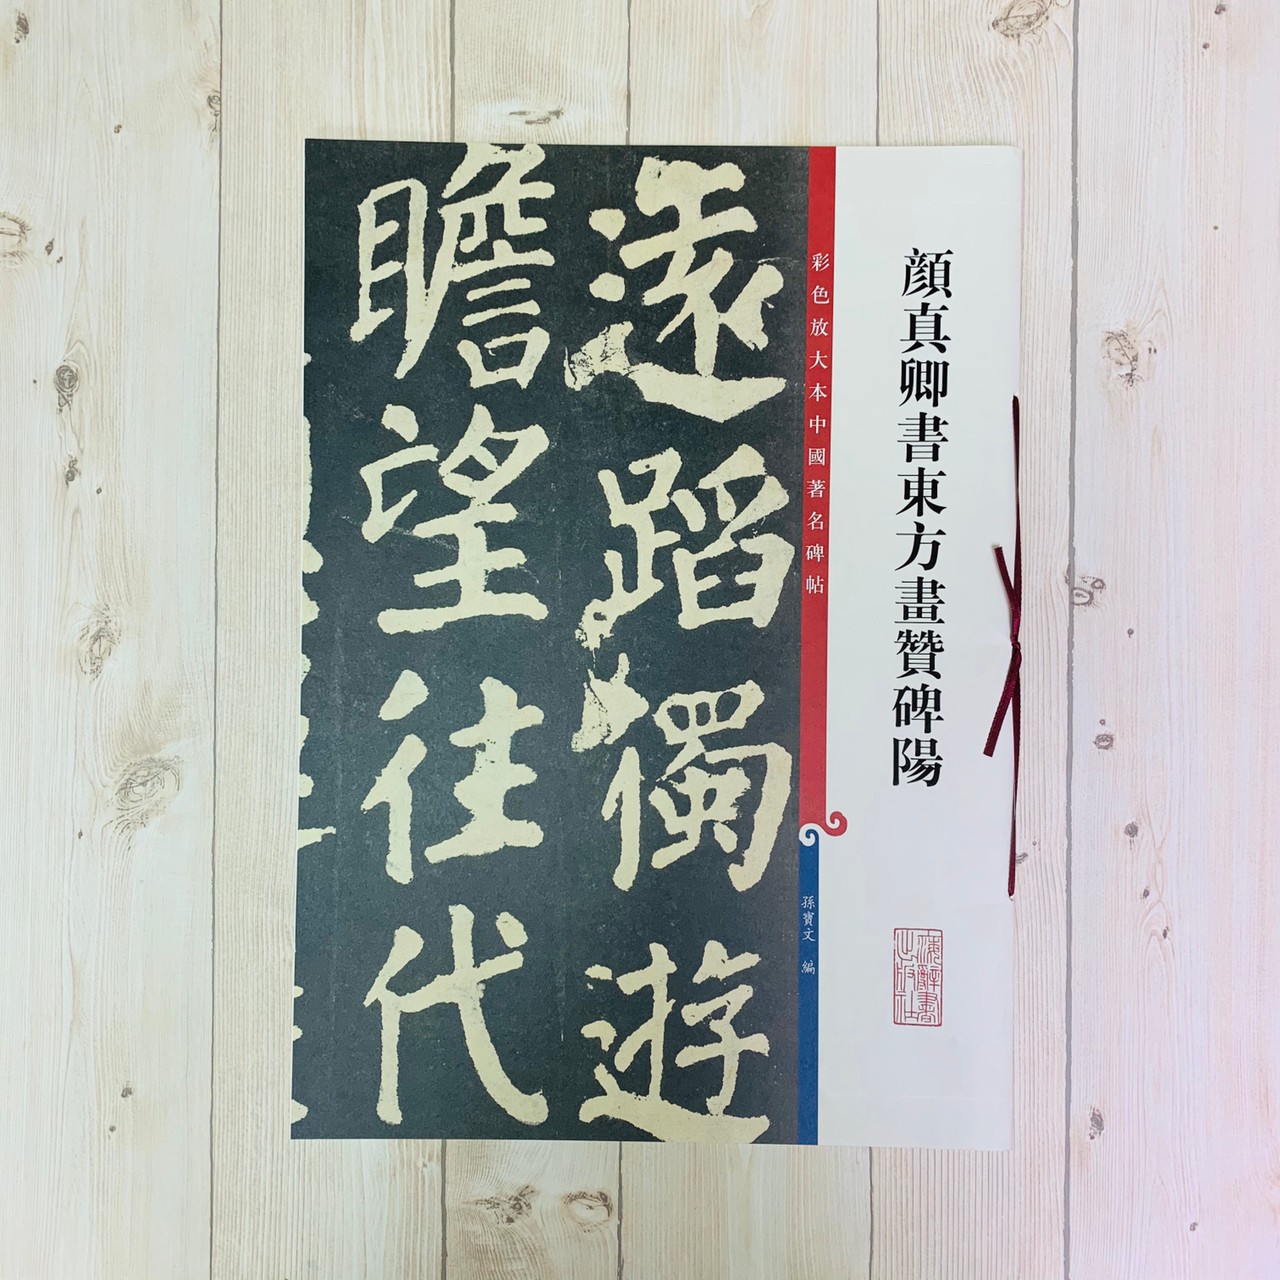 顔真卿書東方畫贊碑陽
海辭書
出版社
彩色放大本中國著名碑帖
孫寶文 編
遠蹈獨遊
瞻望往代